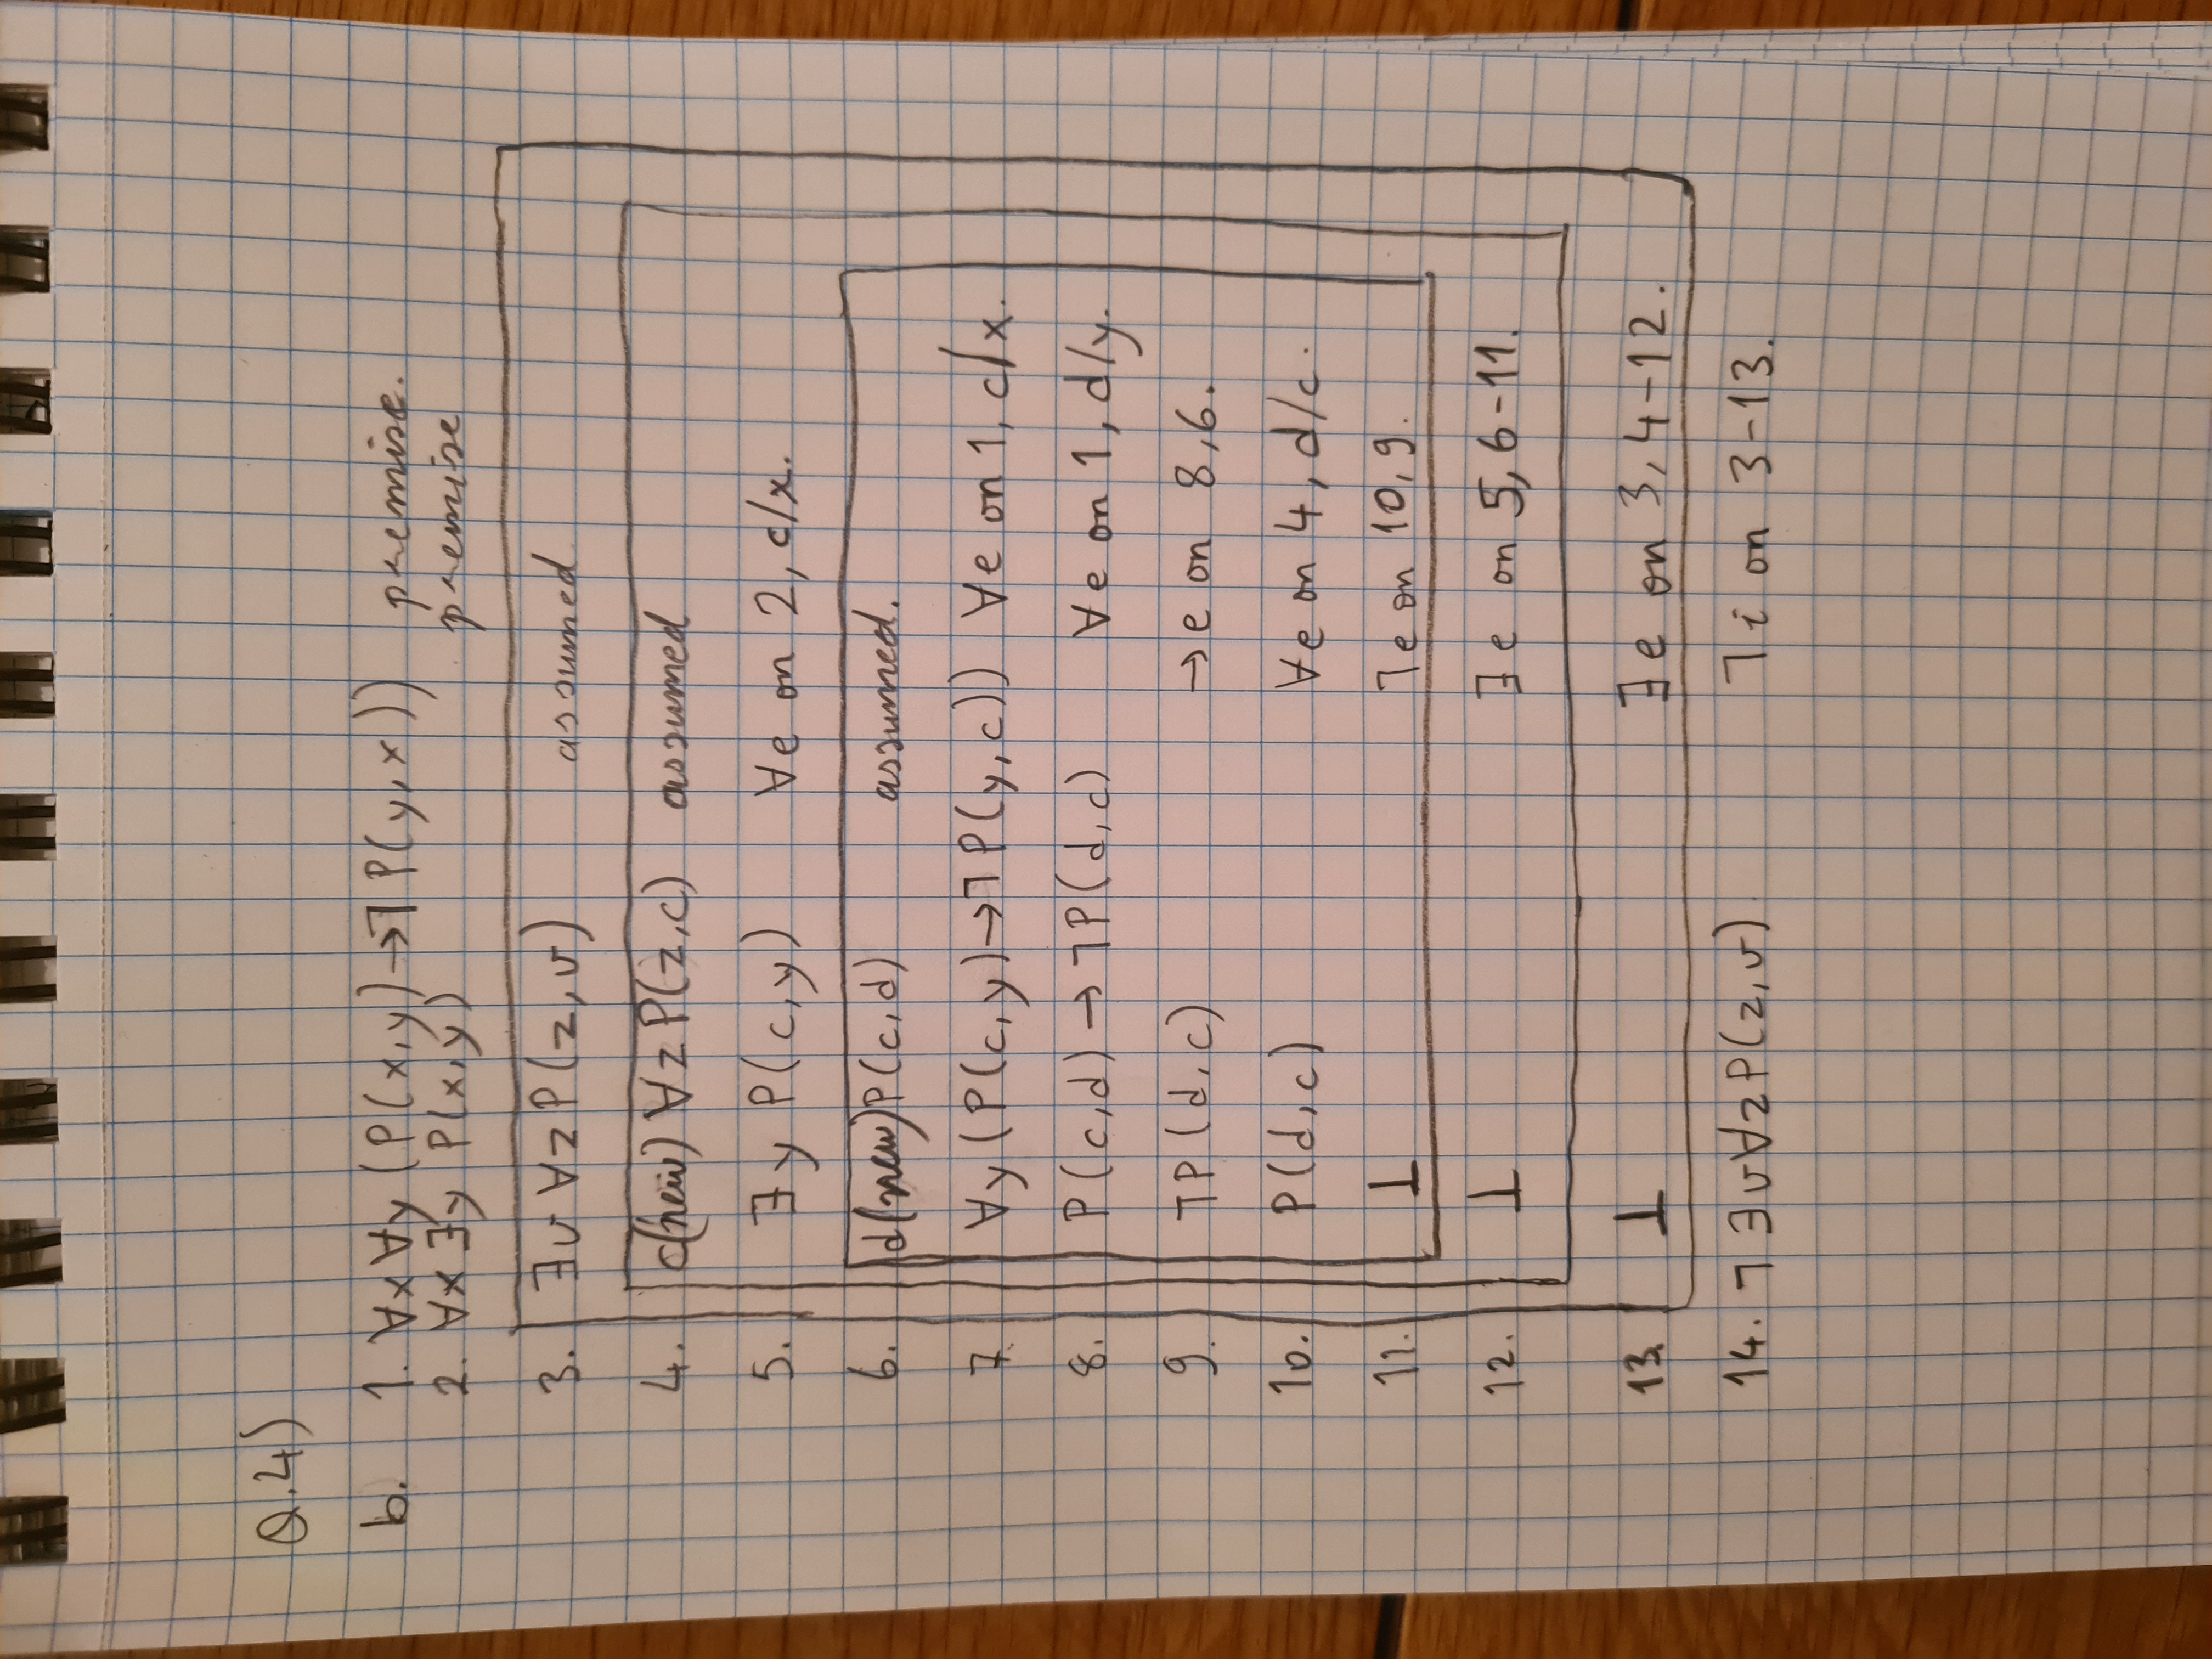 Q.4)
b. 1. ∀x ∀y (P(x,y)→¬P(y,x)) premise.
2. ∀x ∃y P(x,y) premise
3. ∃v ∀z P(z,v) assumed
4. c(new) ∀z P(z,c) assumed
5. ∃y P(c,y) ∀e on 2, c/x.
6. d(new) P(c,d) assumed.
7. ∀y (P(c,y)→¬P(y,c)) ∀e on 1, c/x.
8. P(c,d)→¬P(d,c) ∀e on 1, d/y.
9. ¬P(d,c) →e on 8,6.
10. P(d,c) ∀e on 4, d/c.
11. ⊥ ¬e on 10,9.
12. ⊥ ∃e on 5, 6-11.
13. ⊥ ∃e on 3, 4-12.
14. ¬∃v∀z P(z,v) ¬i on 3-13.